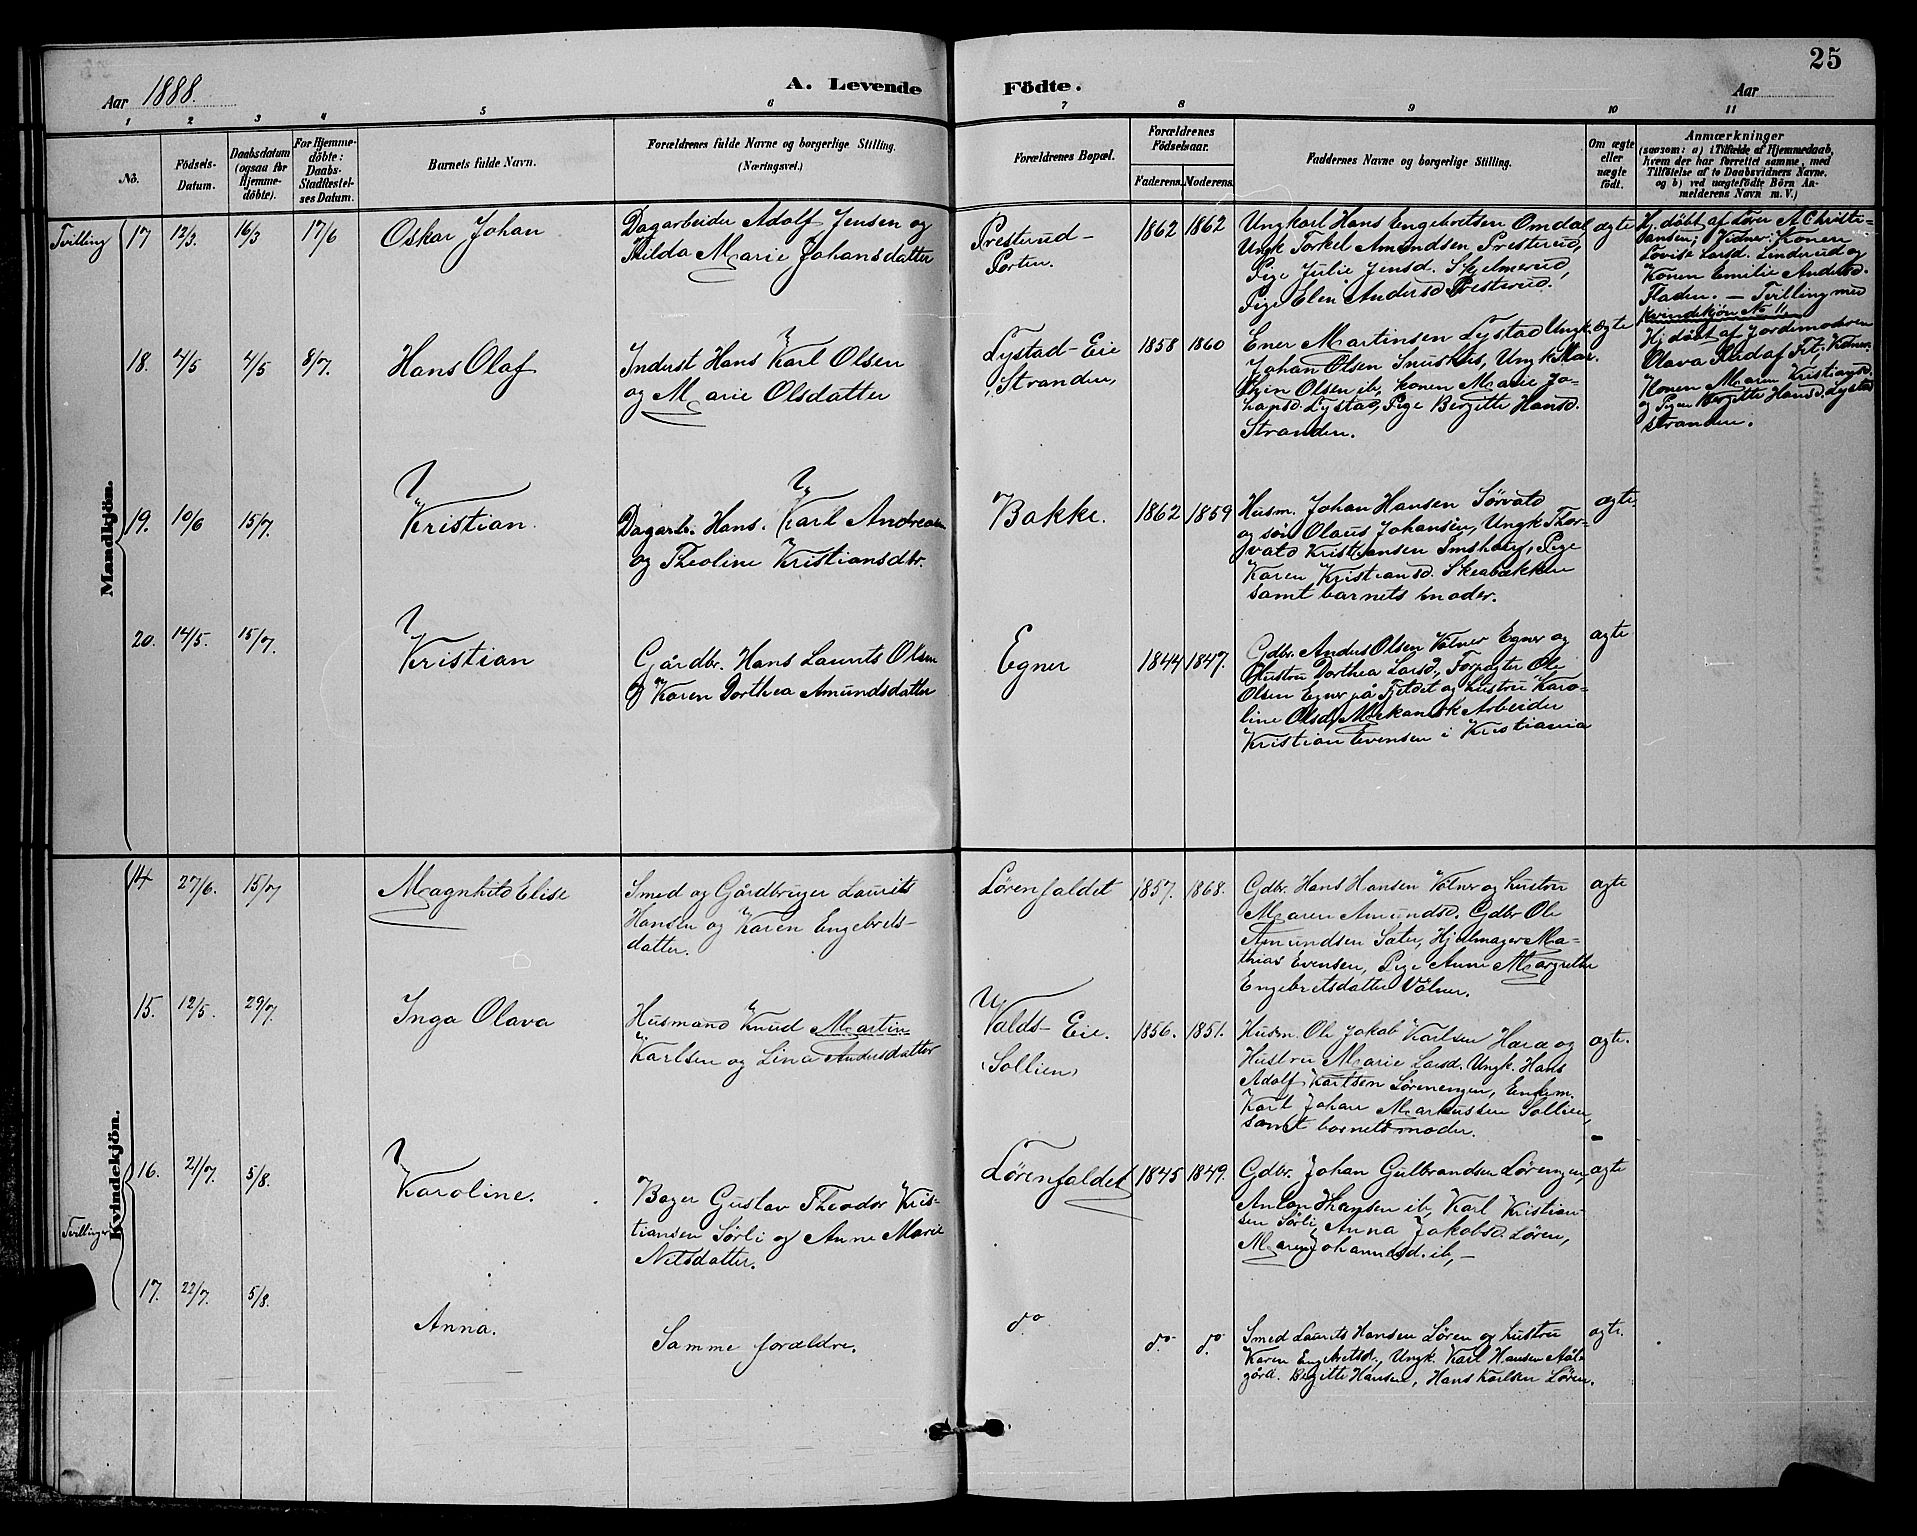 25
Aar 1888.
A. Levende Födte.
Aar
1 2 3 4 5 6 7 8 9 10 11
No.
Födsels-
Datum.
Daabsdatum
(ogsaa for
Hjemme-
döbte).
For Hjemme-
döbte:
Daabs-
Stadfæstel-
ses Datum.
Barnets fulde Navn.
Forældrenes fulde Navne og borgerlige Stilling.
(Næringsvei.)
Forældrenes Bopæl.
Forældrenes
Födselsaar.
Faderens. Moderens.
Faddernes Navne og borgerlige Stilling.
Om ægte
eller
uægte
födt.
Anmærkninger
(saasom: a) i Tilfælde af Hjemmedaab,
hvem der har forrettet samme, med
Tilföielse af to Daabsvidners Navne.
og b) ved uægtefödte Börn An-
melderens Navn m. V.)
Mandkjön.
Tvilling
17 12/3. 16/3 17/6
Oskar Johan
Dagarbeider Adolf Jensen og
Hilda Marie Johansdatter
Presterud-
Porten.
1862 1862
Ungkarl Hans Engebretsen Omdal
Ungk Torkel Amundsen Presterud,
Pige Julie Jensd. Skjelmerud,
Pige Elen Andersd Presterud.
ægte
Hj. døbt af Lærer A Christi-
ansen; Vidner: Konen
Lovise Larsd. Linderud og
Konen Emilie Andersd.
Fladen. — Tvilling med
Kvindekjøn No 11.
18. 4/5 4/5 8/7.
Hans Olaf
Inderst Hans Karl Olsen
og Marie Olsdatter
Lystad-Eie
Stranden,
1858 1860
Ener Martinsen Lystad Ungk.
Johan Olsen, Ungk Mar-
tin Olsen ib, konen Marie Jo-
hansd. Lystad, Pige Bergitte Hansd.
Stranden.
ægte
Hj døbt af Jordemoderen
Olava,
Konen Maren Kristiansd.
og Pigen Bergitte Hansd. Lystad
stranden.
19. 10/6 15/7.
Kristian.
Dagarb. Hans. Karl Andreasen
og Theoline Kristiansdtr.
Bakke.
1862 1859
Husm. Johan Hansen
og søn Olaus Johansen, Ungk Thor-
vald Kristiansen Imshaug, Pige
Karen Kristiansd. Skeabækken
samt barnets moder.
ægte.
20. 14/5 15/7.
Kristian
Gårdbr. Hans Laurits Olsen
og Karen Dorthea Amundsdatter
Egner
1844 1847.
Gdbr. Anders Olsen Valner Egner og
Hustru Dorthea Larsd, Forpagter Ole
Olsen Egner på Fjeldet og hustru Karo-
line Olsd, Mekanisk Arbeider
Kristian Evensen i Kristiania
ægte
Kvindekjön.
14 27/6. 15/7
Magnhild Elise
Smed og Gårdbruger Laurits
Hansen og Karen Engebrets-
datter.
Lørenfaldet
1857. 1868.
Gdbr. Hans Hansen Valner og hustru
Maren Amundsd. Gdbr Ole
Amundsen Sater, Hjulmager Ma-
thias Evensen, Pige Anne Margrethe
Engebretsdatter Valner.
ægte
15. 12/5. 29/7.
Inga Olava
Husmand Knud Martin
Karlsen og Lina Andersdatter
Valds- Eie.
Sollien,
1856. 1851.
Husm. Ole Jakob Karlsen Hara og
Hustru Marie Larsd. Ungk. Hans
Adolf Karlsen Lørenengen, Enkem.
Karl Johan Markussen Sollien,
samt barnets moder.
ægte.
16. 21/7. 5/8.
Karoline.
Bager Gustav Theodor Kris-
tiansen Sørli og Anne Marie
Nilsdatter.
Lørenfaldet
1845 1849.
Gdbr. Johan Gulbrandsen Lørengen,
Anton Hansen ib, Karl Kristian-
sen Sørli, Anna Jakobsd. Løren,
Maren Johannesd. ib, —
ægte
Tvillinger
17. 22/7. 5/8.
Anna.
Samme forældre.
do
do do
Smed Laurits Hansen Løren og hustru
Karen Engebretsd., Ungk. Karl Hansen
gård. Birgitte Hansen, Hans Karlsen Løren.
ægte.